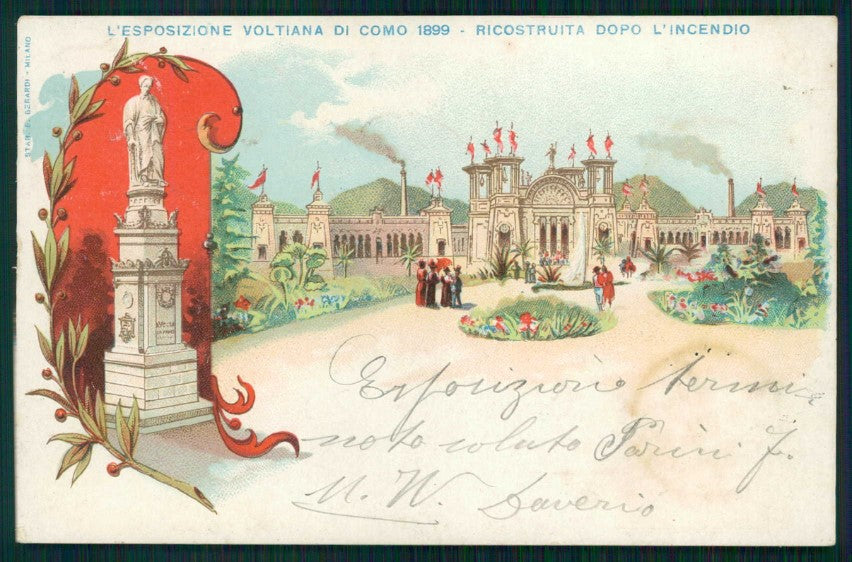 L'ESPOSIZIONE VOLTIANA DI COMO 1899 - RICOSTRUITA DOPO L'INCENDIO
STAB. G. BERARDI - MILANO
Esposizione termi-
nata saluto Parini F.
M. W. Saverio